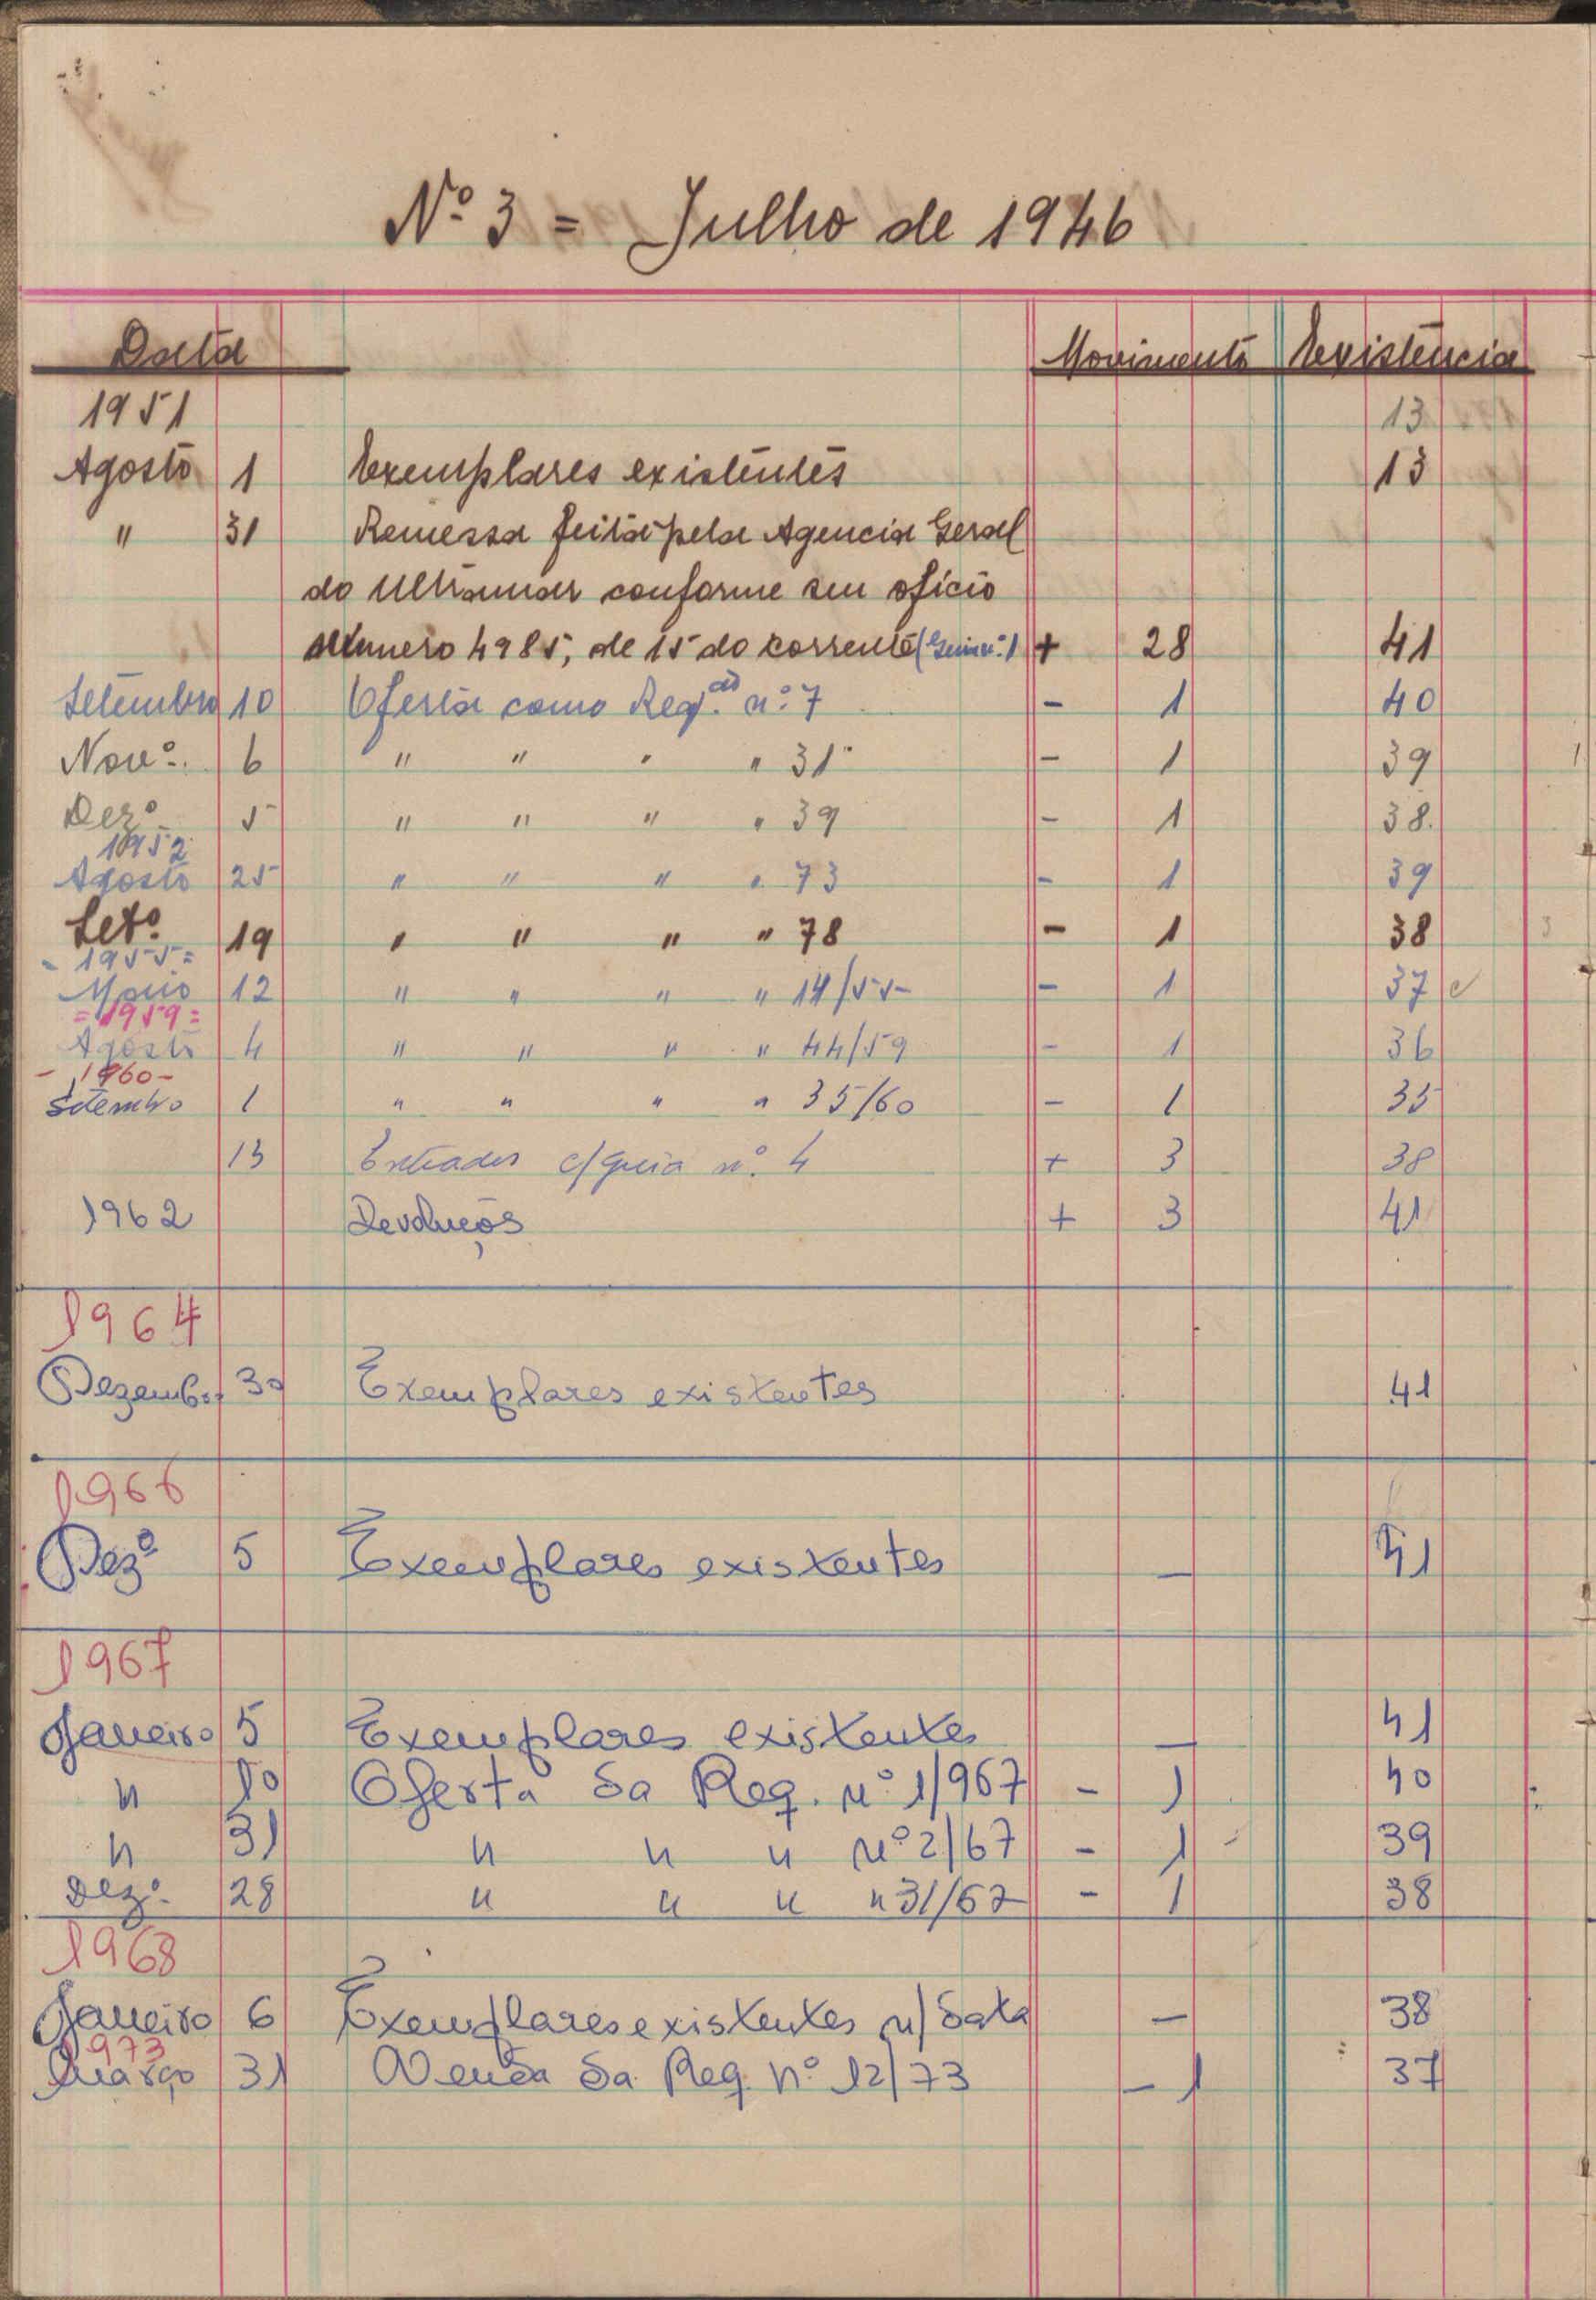 Nº 3 = Julho de 1946
Data Movimento Existência
1951 13
Agosto 1 Exemplares existentes 13
" 31 Remessa feita pela Agencia Geral
do Ultramar conforme seu oficio
número 4985, de 15 do corrente (Guia nº 1) + 28 41
Setembro 10 Oferta como Reqão. nº 7 - 1 40
Novº. 6 " " " " 31 - 1 39
Dezº 5 " " " " 39 - 1 38
1952
Agosto 25 " " " " 73 - 1 39
Setº 19 " " " " 78 - 1 38
- 1955 =
Maio 12 " " " " 14/55 - 1 37
= 1959 =
Agosto 4 " " " " 44/59 - 1 36
- 1960 -
Setembro 1 " " " " 35/60 - 1 35
13 Entradas c/guia nº. 4 + 3 38
1962 Devoluções + 3 41
1964
Dezembro 30 Exemplares existentes 41
1966
Dezº 5 Exemplares existentes — 41
1967
Janeiro 5 Exemplares existentes — 41
" 10 Oferta da Req. nº 1/967 - 1 40
" 31 " " " nº 2/67 - 1 39
Dezº. 28 " " " " 31/67 - 1 38
1968
Janeiro 6 Exemplares existentes n/ data — 38
1973
Março 31 Venda da Req. nº 12/73 - 1 37